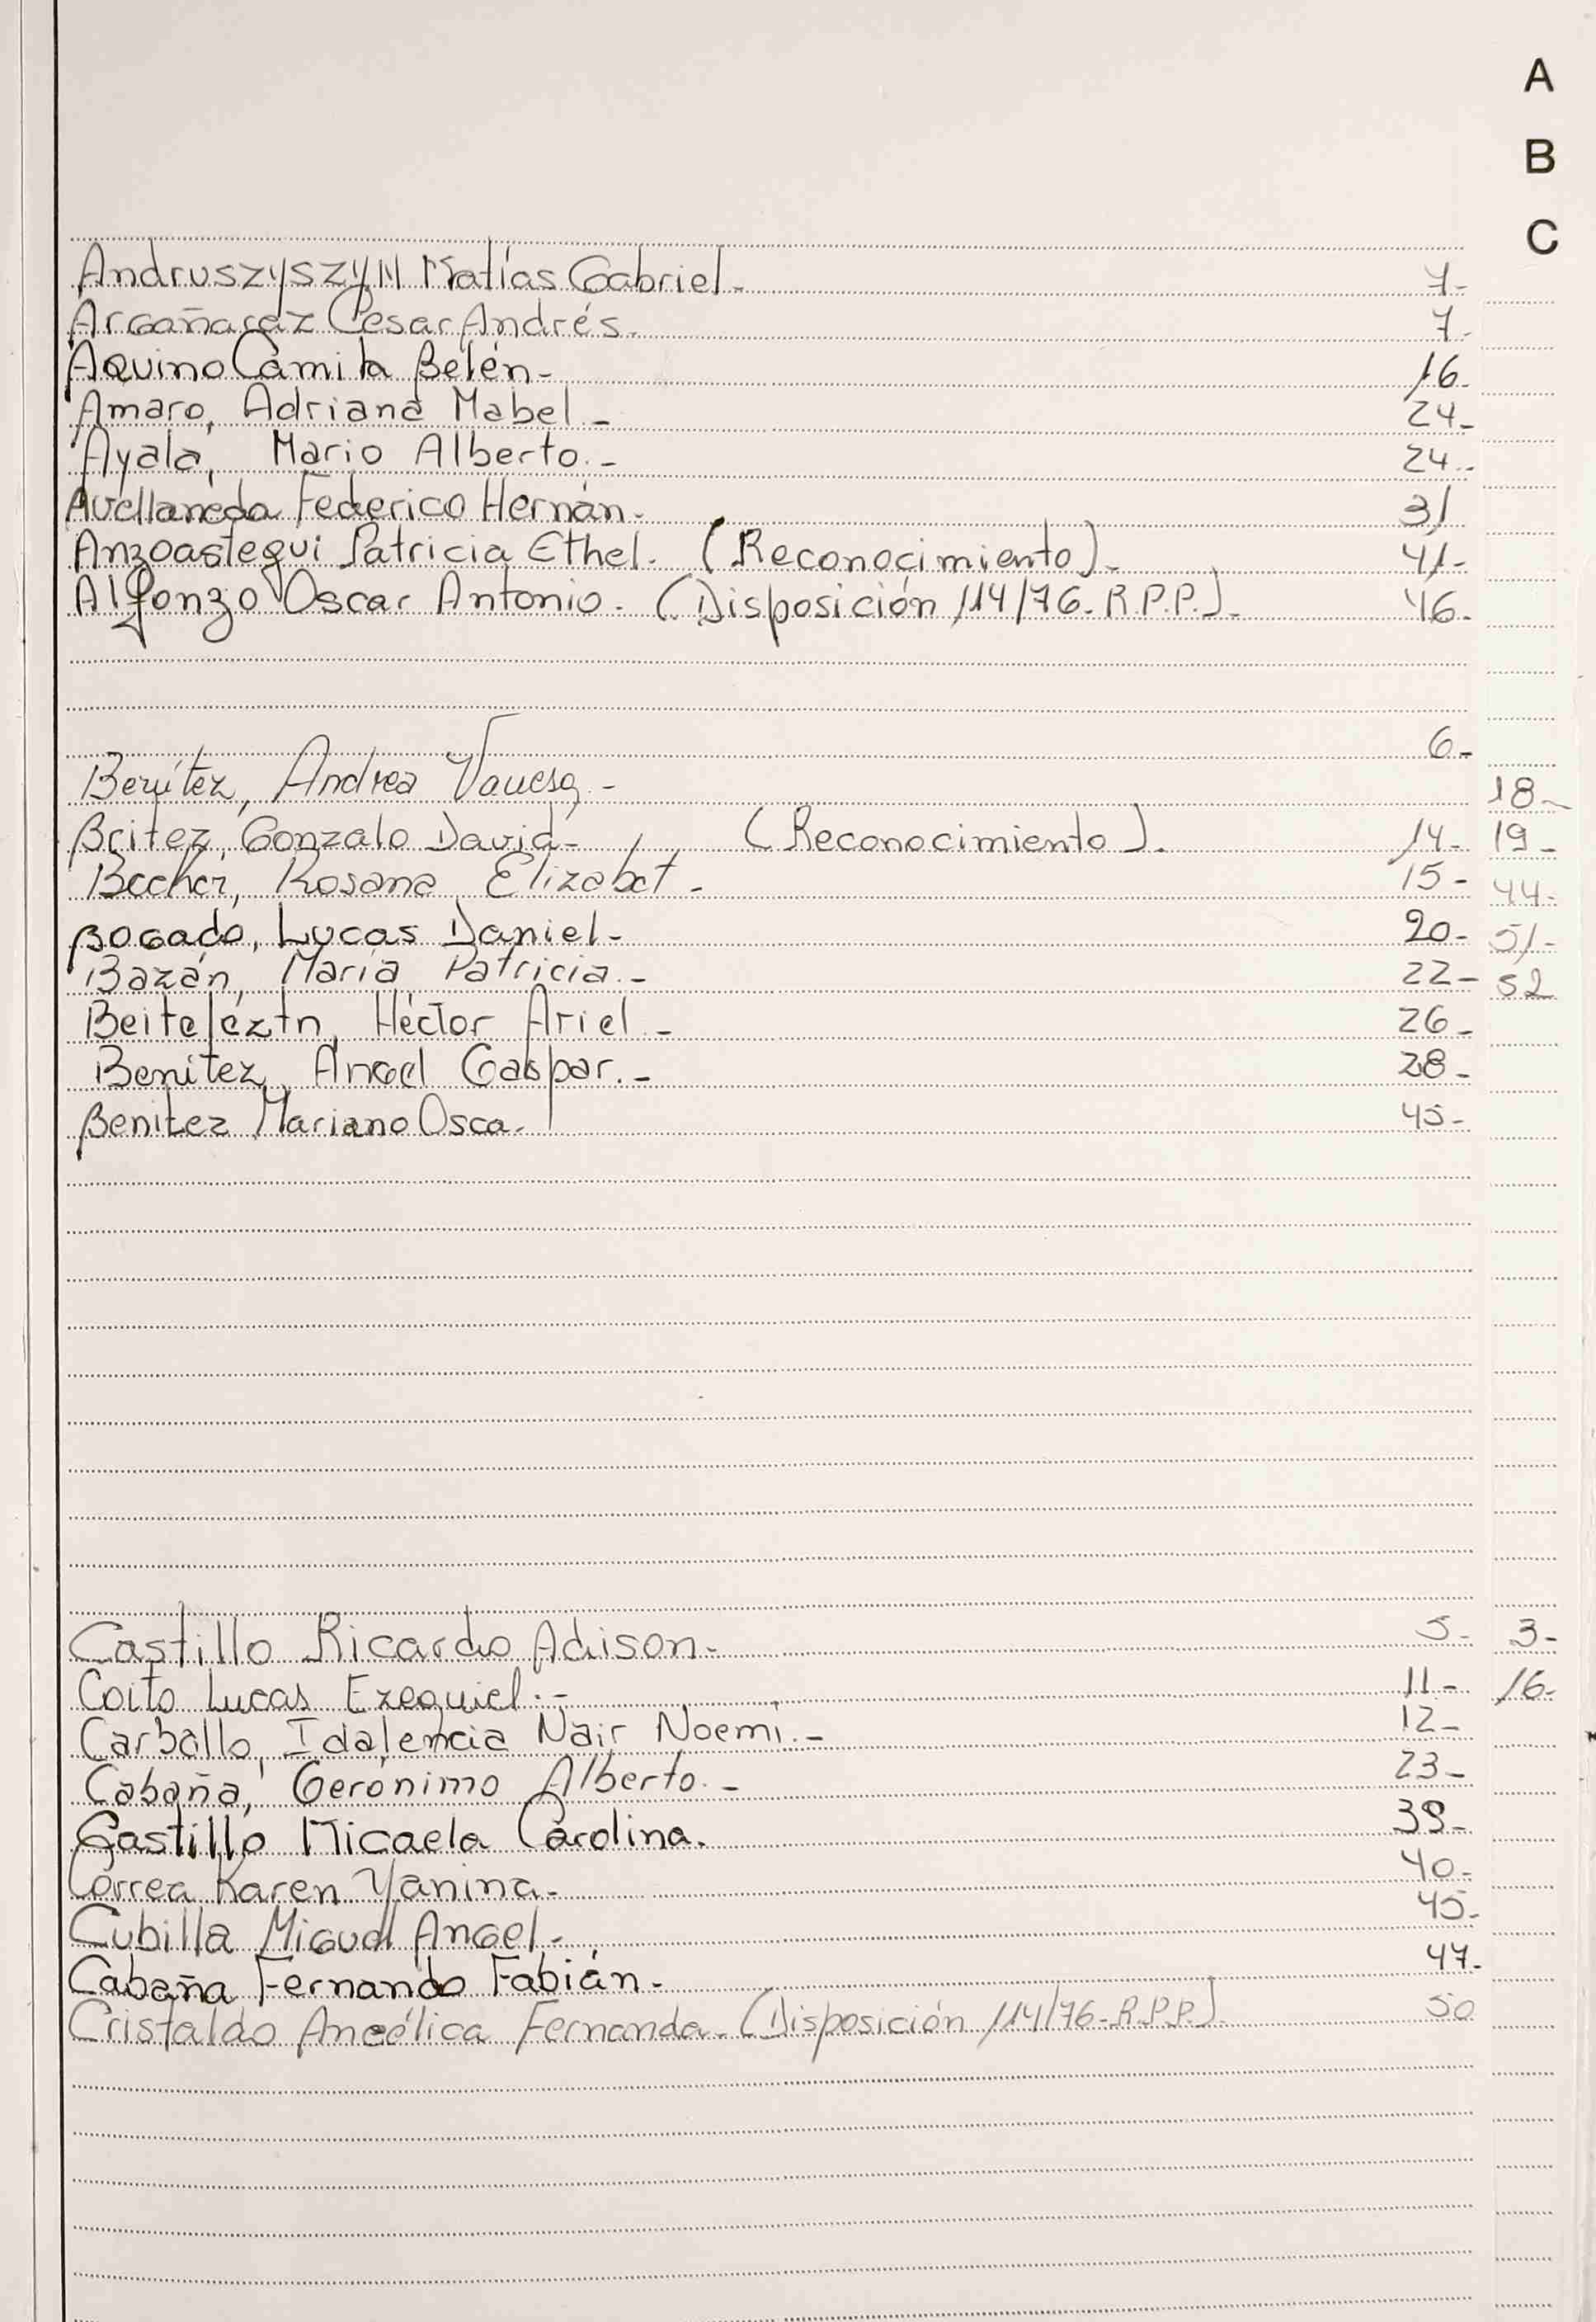 A
B
C
Andruszyszyn Matías Gabriel.- 7-
Argañaraz Cesar Andrés.- 7-
Aquino Camila Belén- 16-
Amaro, Adriana Mabel.- 24-
Ayala, Mario Alberto.- 24.-
Avellaneda Federico Hernán.- 31
Anzoastegui Patricia Ethel. (Reconocimiento)- 41-
Alfonzo Oscar Antonio. (Disposición 114/76-R.P.P.)- 46-
6-
Benítez, Andrea Vanesa.- 18-
Britez, Gonzalo David- (Reconocimiento). 14- 19-
Becher, Rosana Elizabet.- 15- 44-
Bogado, Lucas Daniel- 20- 51-
Bazán, María Patricia.- 22- 52
Héctor Ariel.- 26-
Benitez, Angel Gaspar.- 28-
Benitez Mariano Osca- 45-
Castillo Ricardo Adison- 5- 3-
Coito Lucas Ezequiel.- 11- 16-
Carballo, Idalencia Nair Noemi.- 12-
Cabaña, Gerónimo Alberto.- 23-
Castillo Micaela Carolina. 39-
Correa Karen Yanina- 40-
Cubilla Miguel Angel- 45-
Cabaña Fernando Fabián- 47-
Cristaldo Angélica Fernanda-(Disposición 114/76-R.P.P.) 50